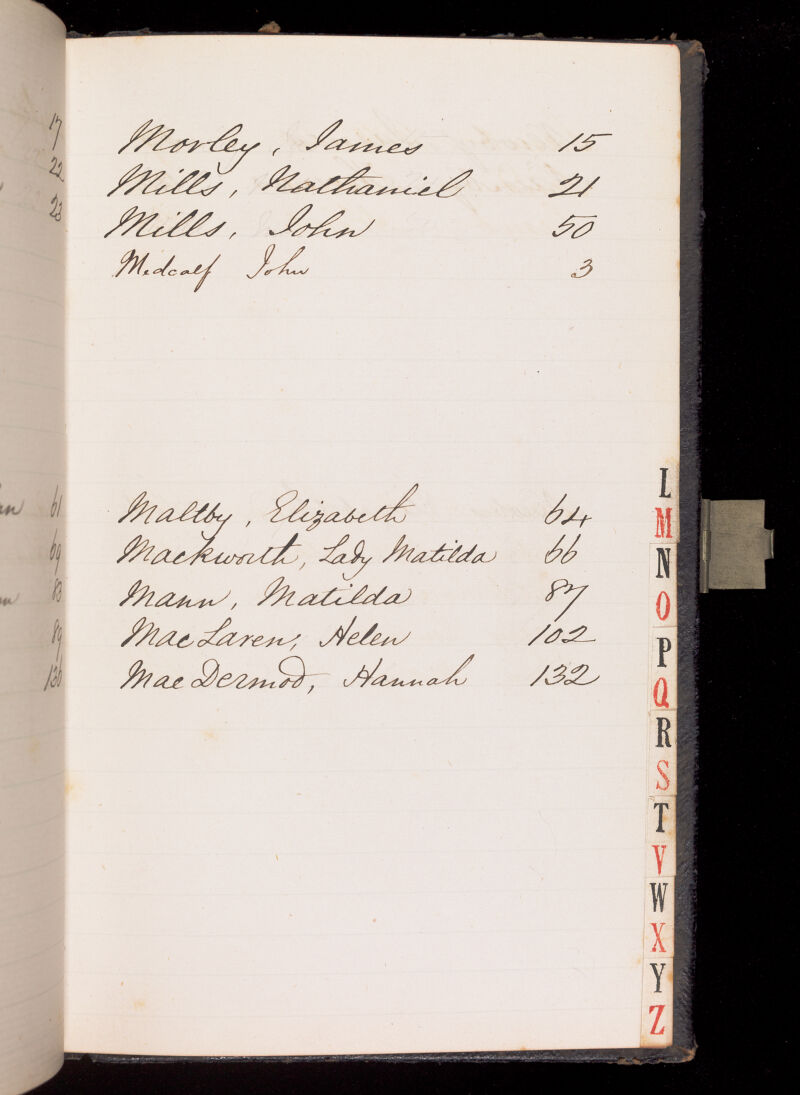 17
22
23
61
69
83
89
136
Morley, James 15
Mills, Nathaniel 21
Mills, John 50
Medcalf John 3
Maltby, Elizabeth 64
Mackworth, Lady Matilda 66
Mann, Matilda 87
MacLaren, Helen 102
MacDermod, Hannah 132
L
M
N
O
P
Q
R
S
T
V
W
X
Y
Z